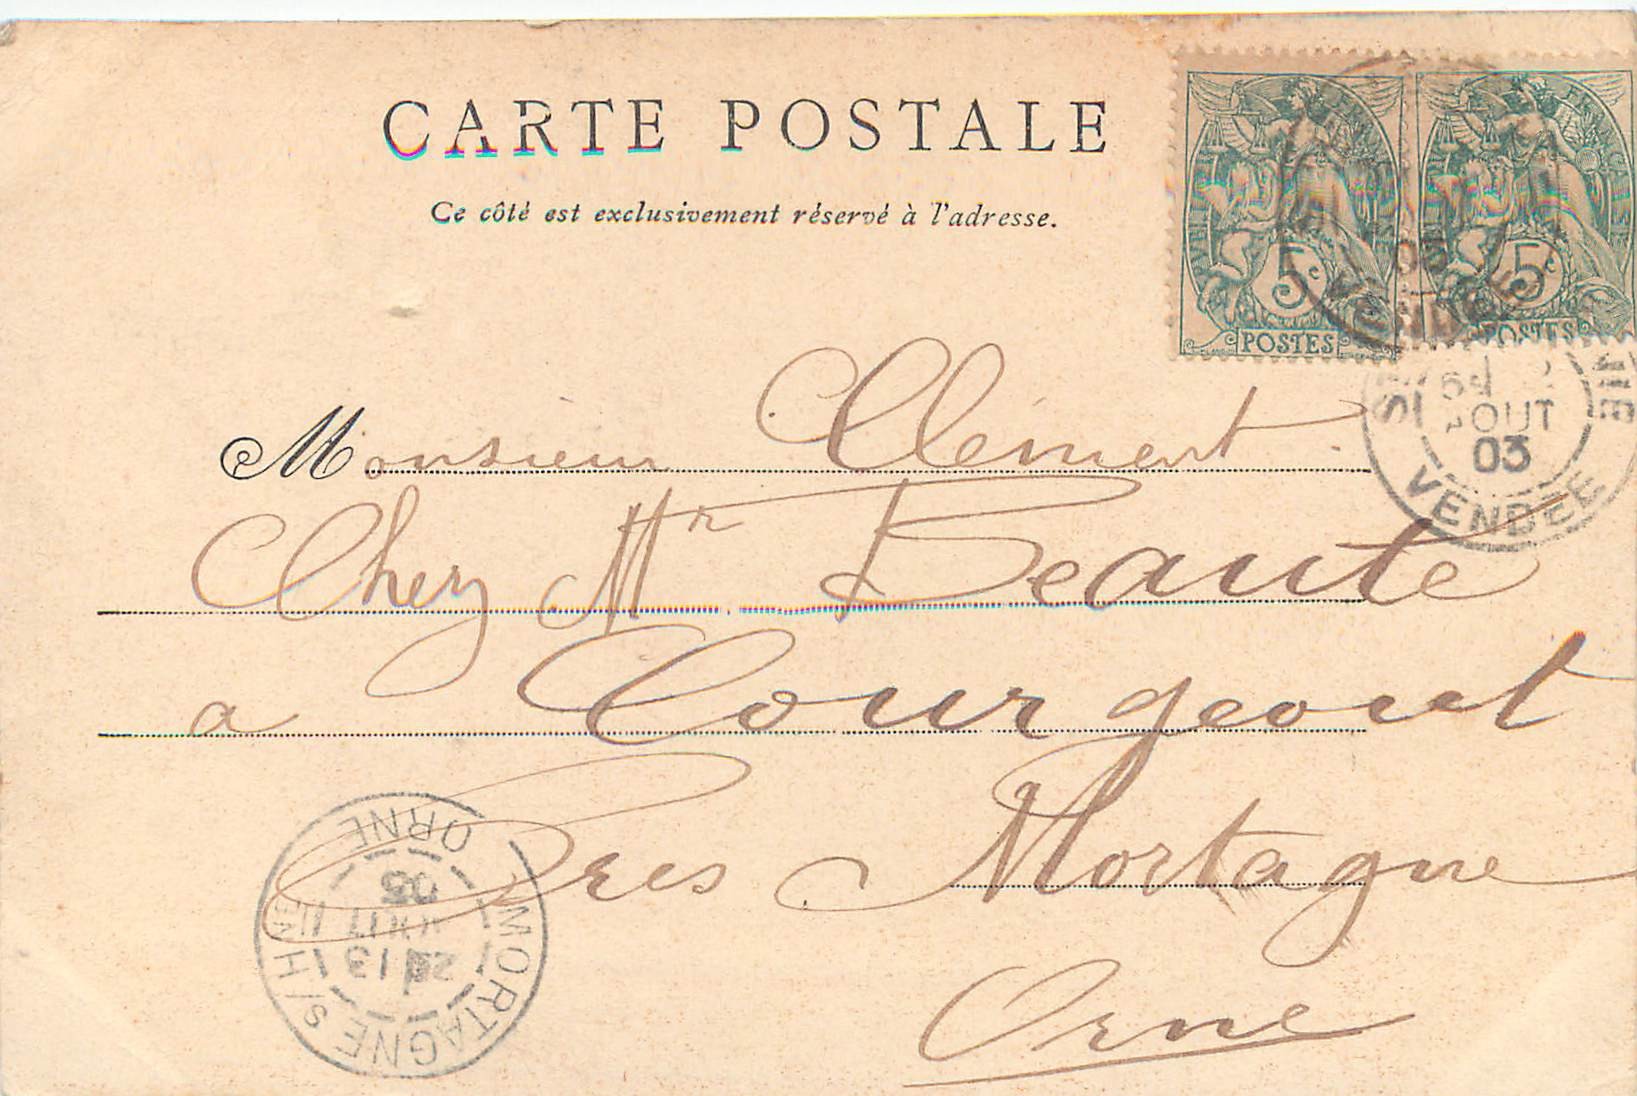 CARTE POSTALE
Ce côté est exclusivement réservé à l'adresse.
5c
POSTES
5c
POSTES
03
VENDÉE
AOUT
03
VENDÉE
Monsieur Clément.
Chez Mr Beauté
a Courgeout
Pres Mortagne
Orne
MORTAGNE S/ HNE
ORNE
13
03